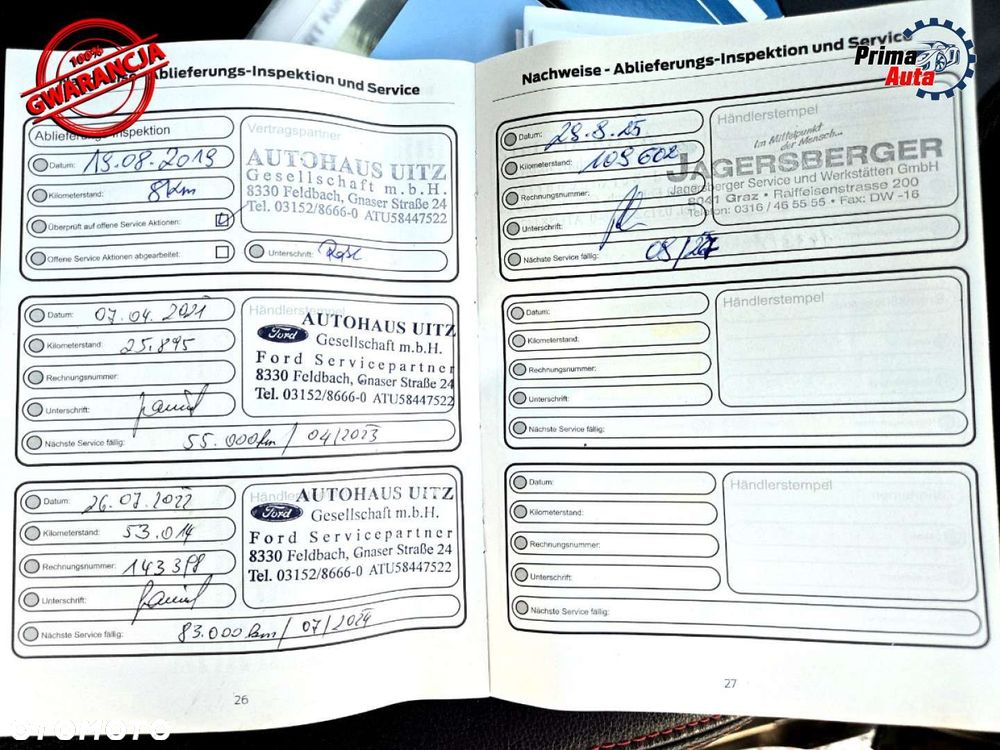 100%
GWARANCJA
Ablieferungs-Inspektion und Service
Ablieferungs-Inspektion
Datum: 19.08.2019
Kilometerstand: 8km
Überprüft auf offene Service Aktionen:
Offene Service Aktionen abgearbeitet:
Vertragspartner
AUTOHAUS UITZ
Gesellschaft m.b.H.
8330 Feldbach, Gnaser Straße 24
Tel. 03152/8666-0 ATU58447522
Unterschrift:
Datum: 07.04.2021
Kilometerstand: 25.895
Rechnungsnummer:
Unterschrift:
Nächste Service fällig: 55.000km / 04/2023
Händlerstempel
Ford
AUTOHAUS UITZ
Gesellschaft m.b.H.
Ford Servicepartner
8330 Feldbach, Gnaser Straße 24
Tel. 03152/8666-0 ATU58447522
Datum: 26.07.2022
Kilometerstand: 53.014
Rechnungsnummer: 143398
Unterschrift:
Nächste Service fällig: 83.000km / 07/2024
Ford
AUTOHAUS UITZ
Gesellschaft m.b.H.
Ford Servicepartner
8330 Feldbach, Gnaser Straße 24
Tel. 03152/8666-0 ATU58447522
26
Prima
Auta
Nachweise - Ablieferungs-Inspektion und Service
Datum: 29.8.25
Kilometerstand: 109602
Rechnungsnummer:
Unterschrift:
Nächste Service fällig: 08/27
Händlerstempel
Im Mittelpunkt
der Mensch...
JAGERSBERGER
Jagersberger Service und Werkstätten GmbH
8041 Graz • Raiffeisenstrasse 200
Telefon: 0316 / 46 55 55 • Fax: DW -16
Datum:
Kilometerstand:
Rechnungsnummer:
Unterschrift:
Nächste Service fällig:
Händlerstempel
Datum:
Kilometerstand:
Rechnungsnummer:
Unterschrift:
Nächste Service fällig:
Händlerstempel
27
OTOMOTO